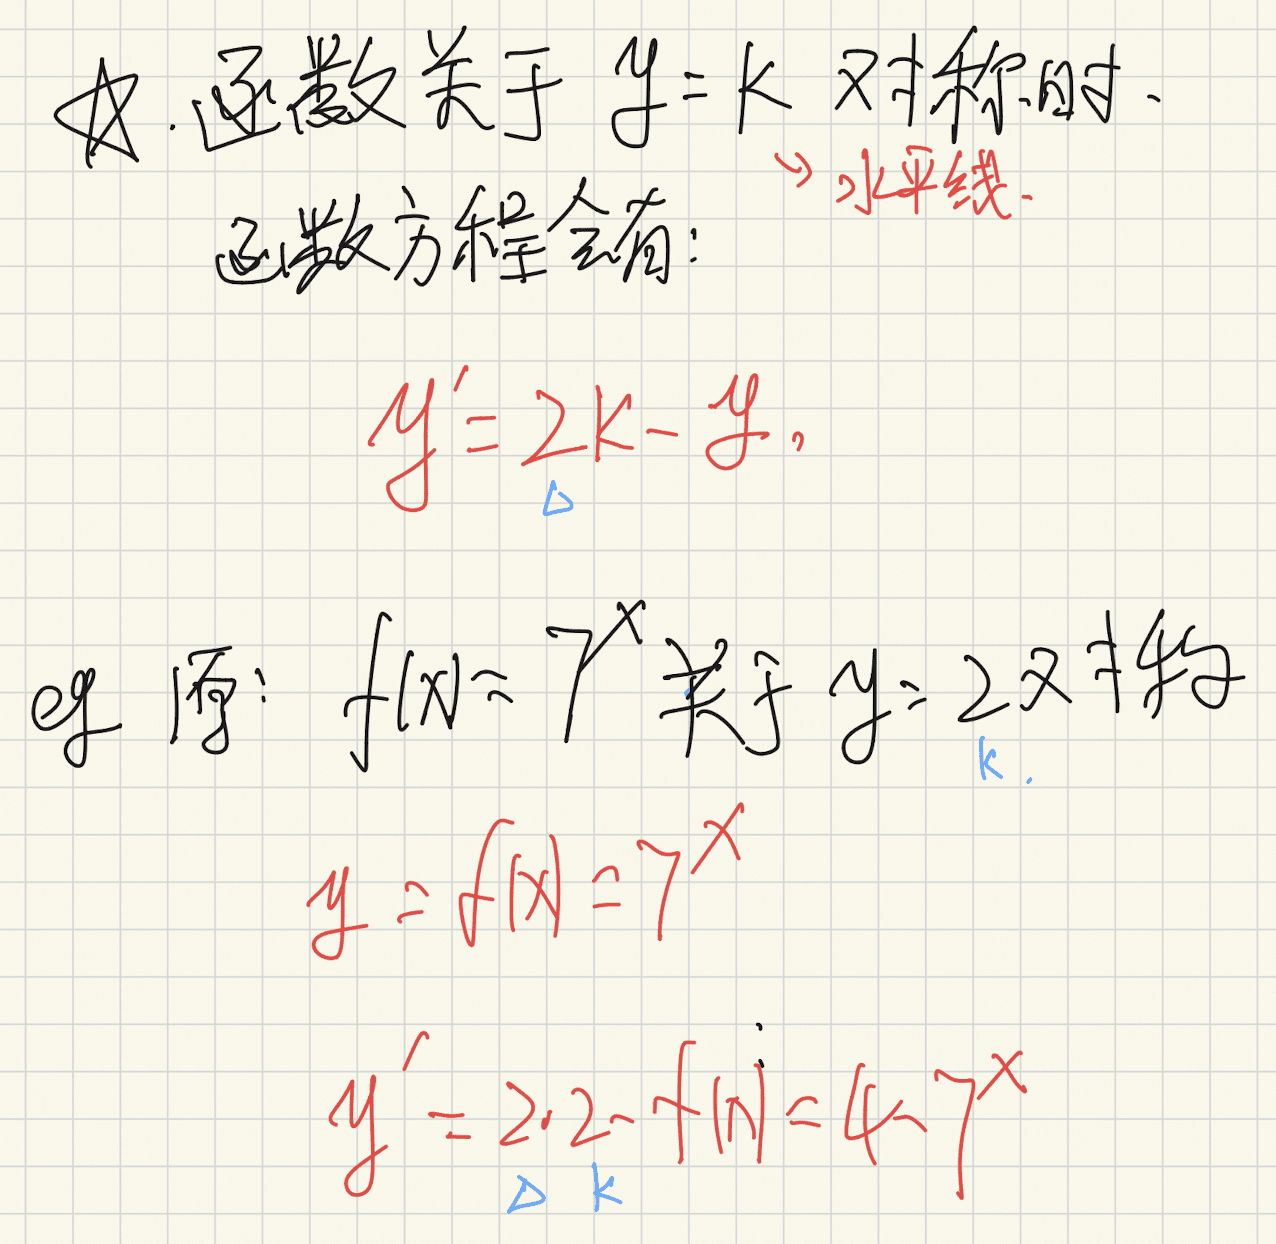 ☆.函数关于 y=k 对称时.
→水平线.
函数方程会有:
y′=2k-y,
△
eg 原: f(x)=7^x 关于 y=2对称
k.
y=f(x)=7^x
y′=2·2-f(x)=4-7^x
△ k